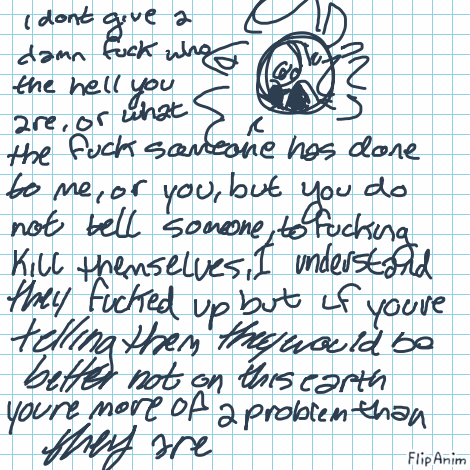 i dont give a
damn fuck who
the hell you
are, or what
the fuck someone has done
to me, or you, but you do
not tell someone, to fucking
kill themselves, I understand
they fucked up but if youre
telling them they would be
better not on this earth
youre more of a problem than
they are
FlipAnim